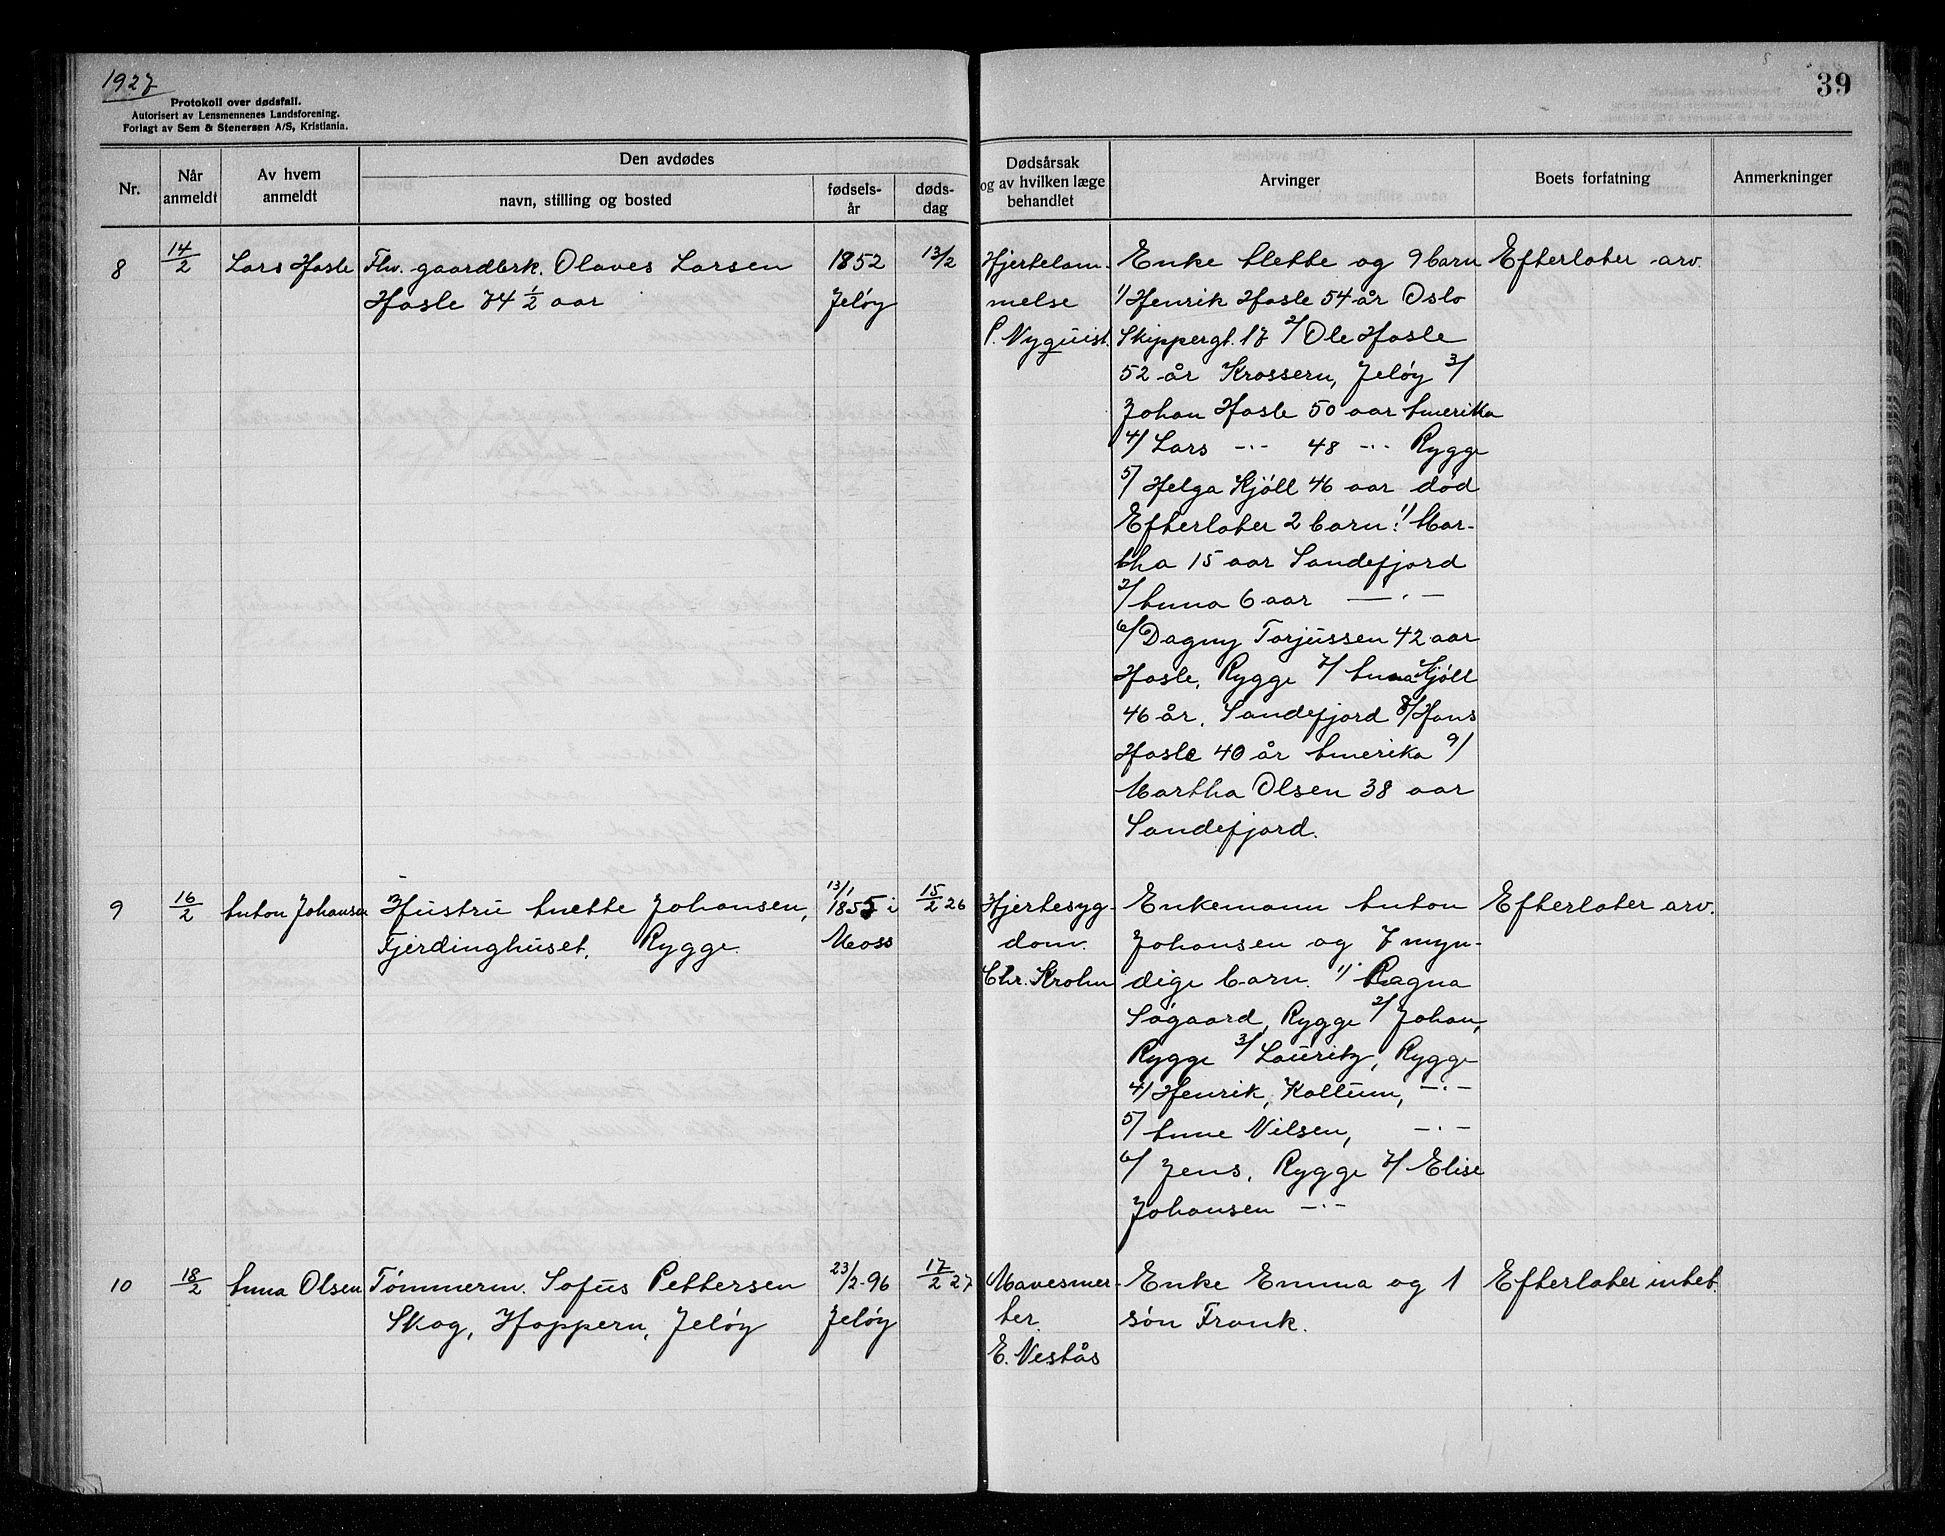 1927
39
Protokoll over dødsfall.
Autorisert av Lensmennenes Landsforening.
Forlagt av Sem & Stenersen A/S, Kristiania.
Nr.
Når anmeldt
Av hvem anmeldt
Den avdødes
navn, stilling og bosted
fødselsår
dødsdag
Dødsårsak
og av hvilken læge
behandlet
Arvinger
Boets forfatning
Anmerkninger
8
14/2
Lars Hasle
Fhv. gaardbrk. Olaves Larsen
Hasle 74 1/2 aar
1852
Jeløy
13/2
Hjertelam-
melse
P. Nyquist.
Enke Anette og 9 barn
1/ Henrik Hasle 54 år Oslo
Skippergt. 17 2/ Ole Hasle
52 år Krossern, Jeløy 3/
Johan Hasle 50 aar Amerika
4/ Lars -·- 48 -·- Rygge
5/ Helga Kjöll 46 aar död
Efterlater 2 barn: 1/ Mar-
tha 15 aar Sandefjord
2/ Anna 6 aar -·-
6/ Dagny Torjussen 42 aar
Hasle, Rygge 7/ Anna Kjöll
46 år, Sandefjord 8/ Hans
Hasle 40 år Amerika 9/
Martha Olsen 38 aar
Sandefjord.
Efterlater arv.
9
16/2
Anton Johansen
Hustru Anette Johansen,
Fjerdinghuset, Rygge.
13/1
1855 i
Moss
15/2 26
Hjertesyg-
dom.
Chr. Krohn
Enkemann Anton
Johansen og 7 myn-
dige barn. 1/ Ragna
Sögaard, Rygge 2/ Johan,
Rygge 3/ Lauritz, Rygge
4/ Henrik, Kaltum, -·-
5/ Anne Nilsen, -·-
6/ Jens, Rygge 7/ Elise
Johansen -·-
Efterlater arv.
10
18/2
Anna Olsen
Tömmerm. Sofus Pettersen
Skog, Hoppern, Jeløy
23/2-96
Jeløy
17/2 27
Mavesmer-
ter.
E. Vestås
Enke Emma og 1
sön Frank.
Efterlater intet.